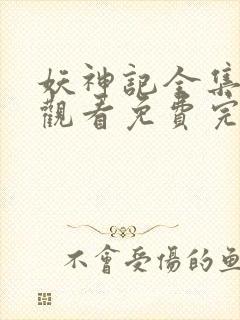 妖神記全集
觀看免費完
不會受傷的魚